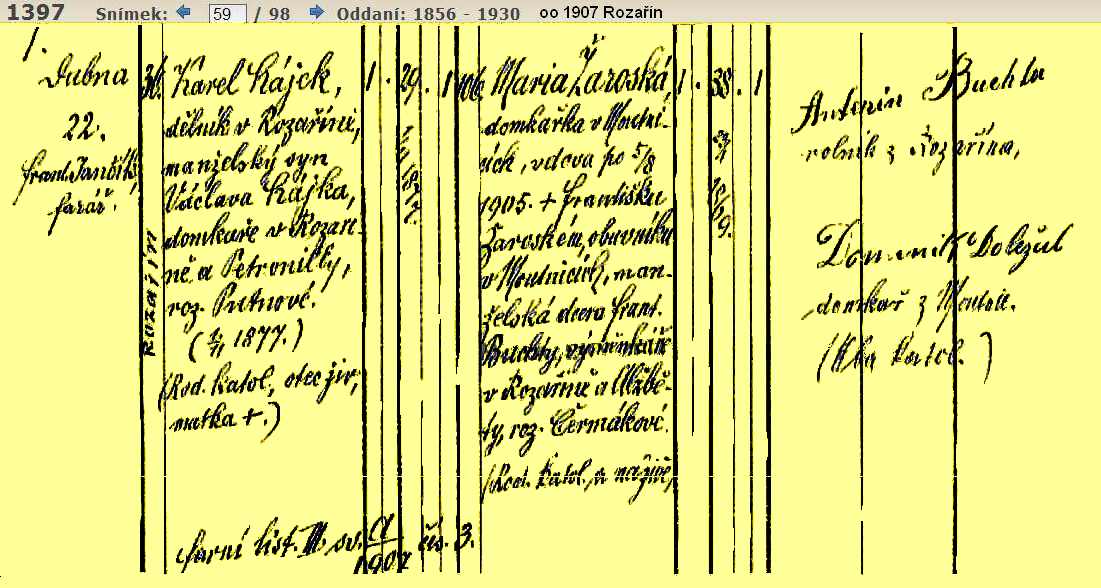 1397 Snímek: 59 / 98 Oddaní: 1856 - 1930 oo 1907 Rozařín
1.
Dubna
22.
Frant. Jančík
farář.
Rozařín
36. Karel Hájek,
dělník v Rozařině,
manželský syn
Václava Hájka,
domkaře v Rozaři-
ně a Petronilly,
roz. Putnové.
1877.)
(Rod. katol., otec jiv,
matka +.)
1. 29. 1
106. Maria Žaroská,
domkářka v Moutni-
cích, vdova po 5/8
1905. + Františku
Žaroském, obuvníku
v Moutnicích, man-
želská dcera Frant.
Buchty, výměnkáře
v Rozařině a Alžbě-
ty, roz. Čermákové.
(Rod. katol., a naživě,
1. 38. 1
Antonín Buchta
rolník z Rozařína,
Dominik Doležal
domkař z Moutnic.
katol. )
farní list. II. sv. 1907 čís. 3.